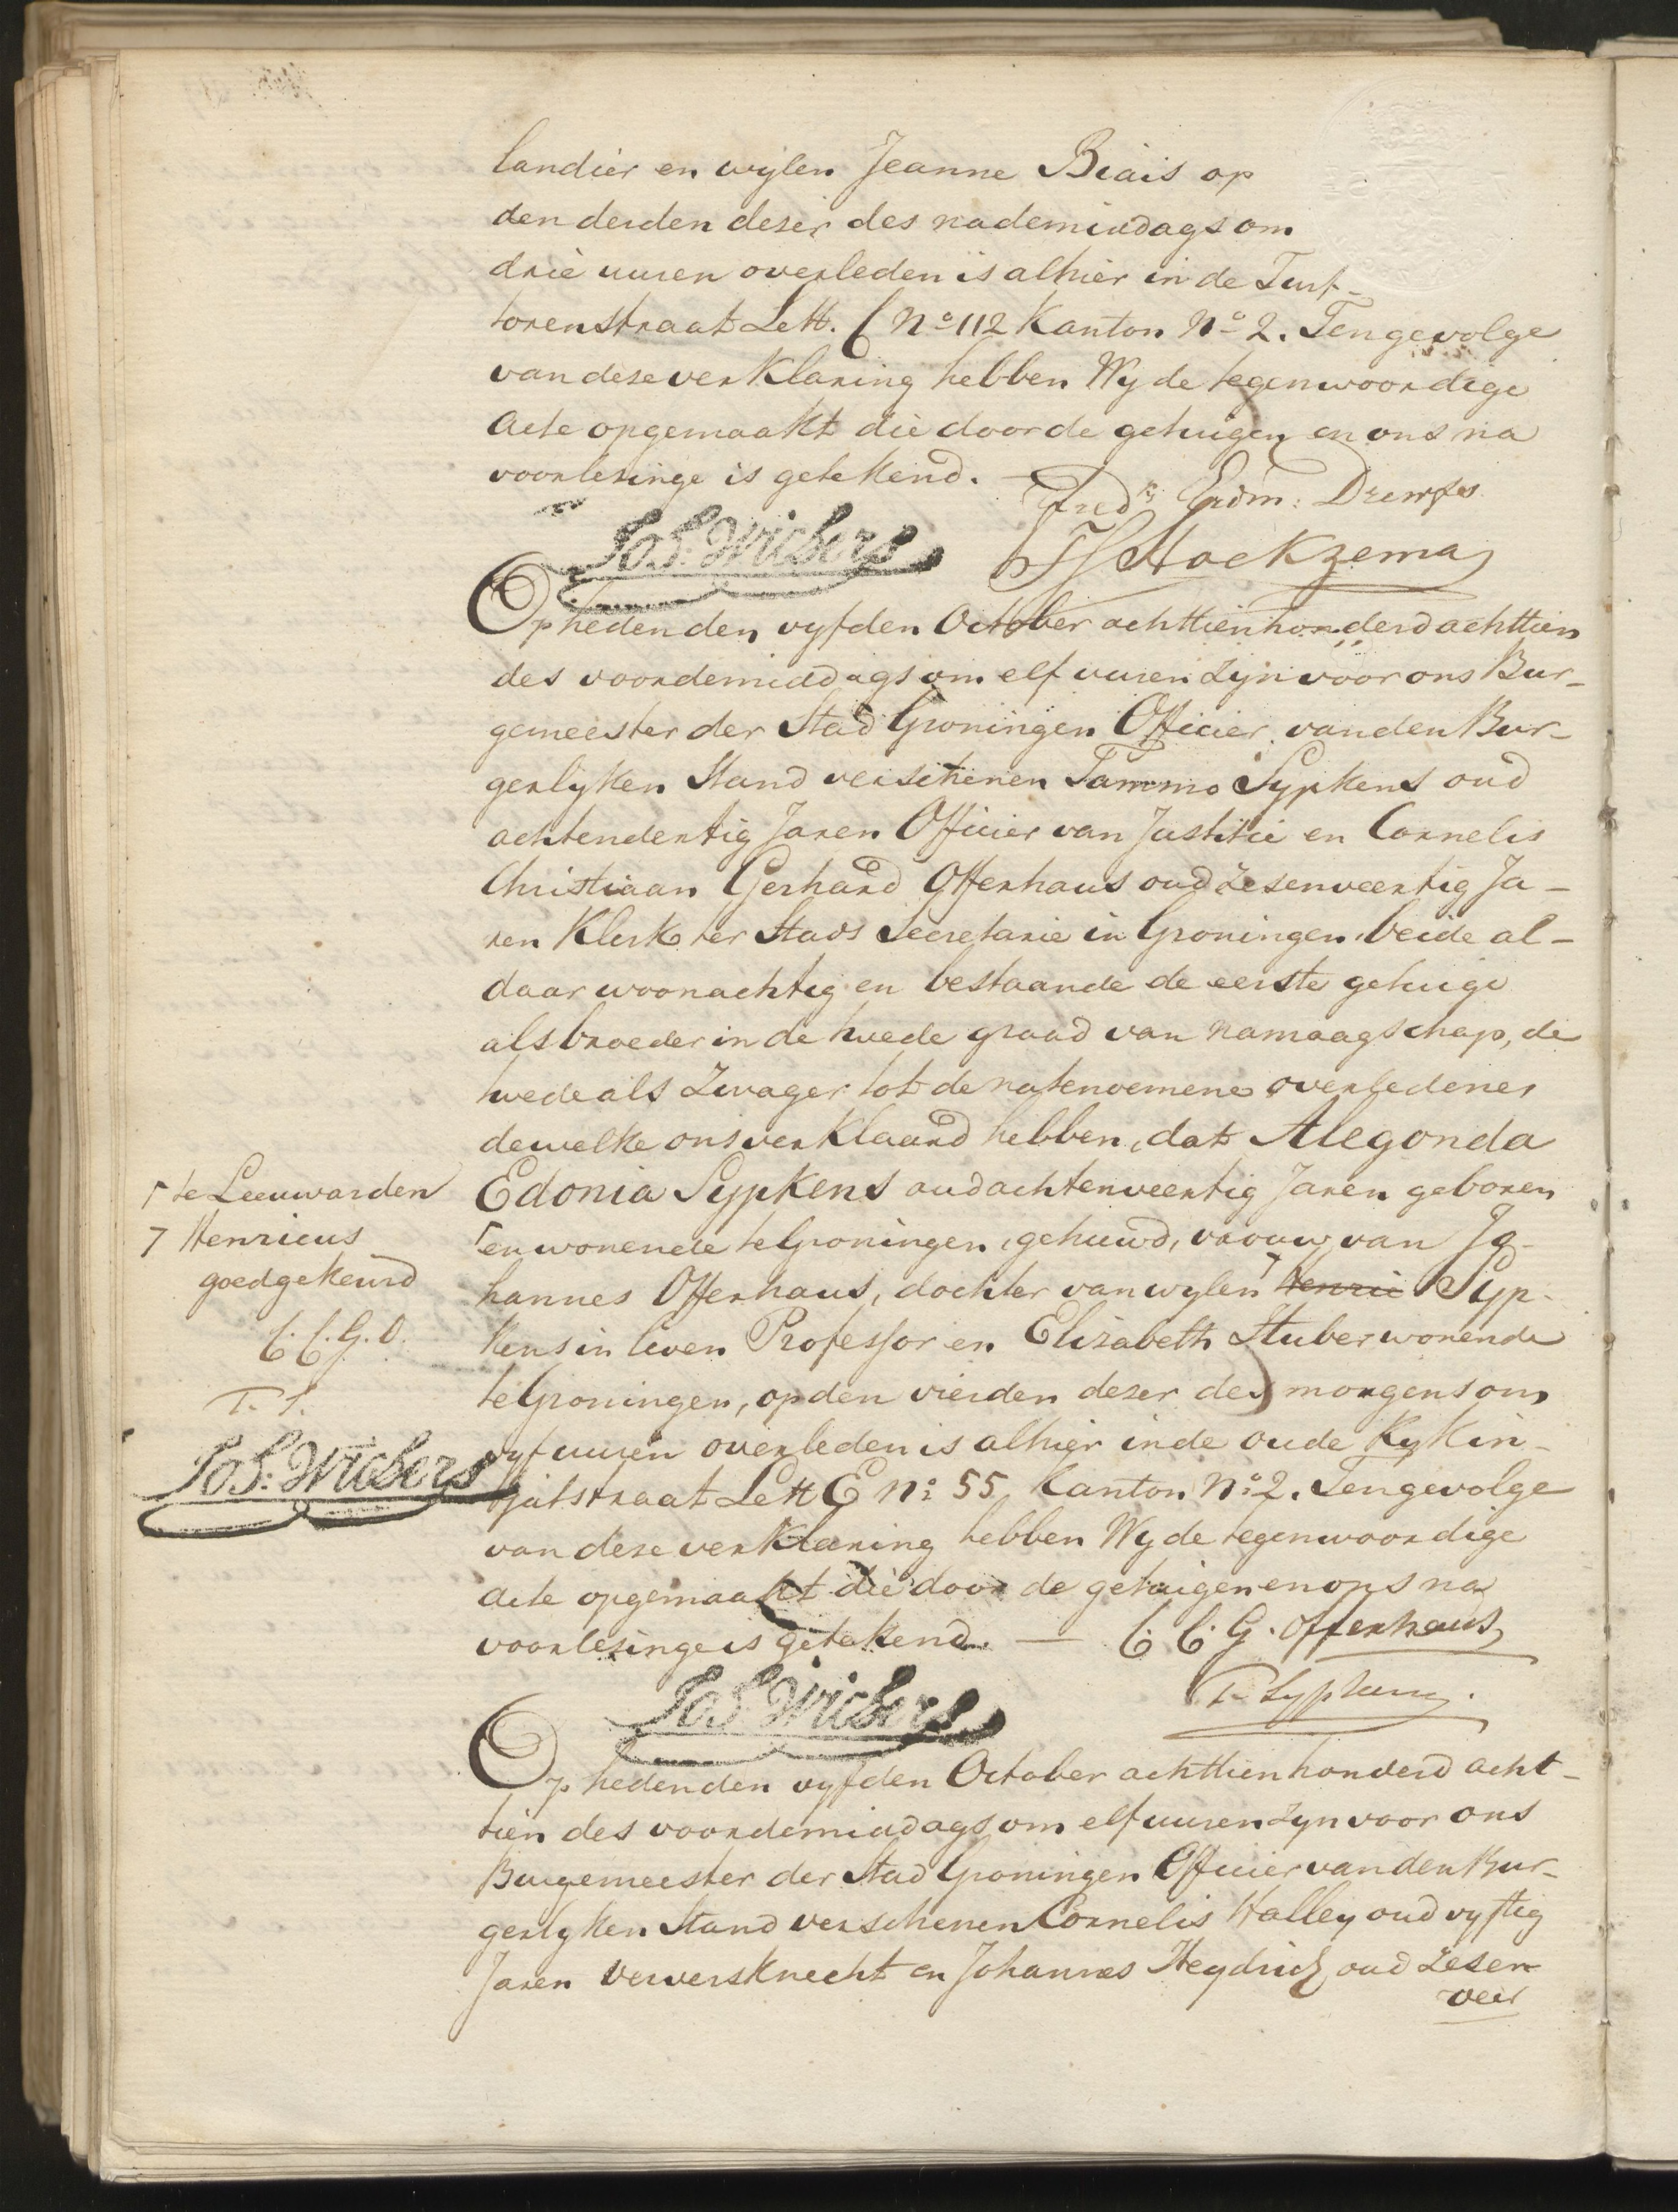 landier en wijlen Jeanne Biais op
den derden dezer des nademiddags om
drie uuren overleden is alhier in de Turf-
torenstraat Lett. C No 112 Kanton No 2. Tengevolge
van deze verklaring hebben Wy de tegenwoordige
acte opgemaakt die door de getuigen en ons na
voorlezinge is getekend. —
Fredk Erdm: Drewes
Jos. Wichers
Hoekzema
Op heden den vyfden October achttienhonderd achttien
des voordemiddags om elf uuren zijn voor ons Bur-
gemeester der Stad Groningen Officier van den Bur-
gerlyken Stand verschenen Tammo Sypkens oud
achtendertig Jaren Officier van Justitie en Cornelis
Christiaan Gerhard Offerhaus oud zesenveertig Ja-
ren Klerk ter Stads Secretarie in Groningen, beide al-
daar woonachtig en bestaande de eerste getuige
als broeder in de twede graad van namaagschap, de
twede als Zwager tot de natenoemene overledenes
dewelke ons verklaard hebben, dat Alegonda
Edonia Sypkens oud achtenveertig Jaren geboren
en wonende te Groningen, gehuwd, vrouw van Jo-
hannes Offerhaus, dochter van wylen Henric Syp-
kens in leven Professor en Elizabeth Stuber wonende
te Groningen, op den vierden dezer des morgens om
vyf uuren overleden is alhier in de oude Kykin-
'tjatstraat Lett E No 55 Kanton No 2. Tengevolge
van deze verklaring hebben Wy de tegenwoordige
acte opgemaakt die door de getuigen en ons na
voorlezinge is getekend. —
C. C. G. Offerhaus
T. Sypkens.
Jos. Wichers
te Leeuwarden
Henricus
goedgekeurd
C. C. G. O.
T. S.
Jos: Wichers
Op heden den vyfden October achttienhonderd acht-
tien des voordemiddags om elf uuren zyn voor ons
Burgemeester der Stad Groningen Officier van den Bur-
gerlyken Stand verschenen Cornelis Halley oud vyftig
Jaren verversknecht en Johannes Heydrich oud zesen
veer